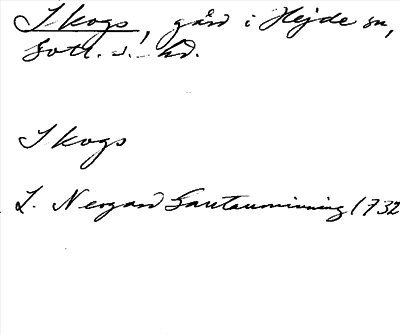 Skogs, gård i Hejde sn,
Gotl. s. hd.
Skogs
L. Nergard Gautauminning 1732